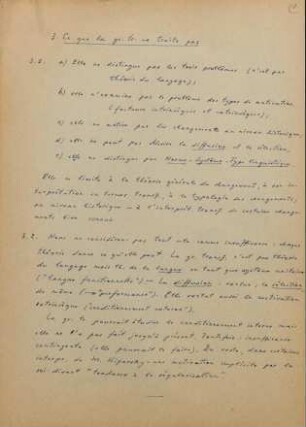 3. Ce que la gr. tr. ne traite pas
3.1. a) Elle ne distingue pas les trois problèmes (n'est pas
théorie du langage);
b) elle n'examine pas le problème des types de motivation
(facteurs intrinsèques et extrinsèques);
c) elle ne motive pas les changements au niveau historique;
d) elle ne peut pas étudier la diffusion et la sélection;
e) elle ne distingue pas Norme-Système-Type linguistique
Elle se limite à la théorie générale du changement, à son in-
terprétation en termes transf., à la typologie des changements;
au niveau historique à l'interprét. transf. de certains change-
ments bien connus
3.2. Nous ne considérons pas tout cela comme insuffisance: chaque
théorie dans ce qu'elle peut. La gr. transf. n'est pas théorie
du langage mais th. de la langue en tant que système unitaire
("langue fonctionnelle") — La diffusion: exclue; la sélection
de même (→ "performance"). Elle exclut aussi la motivation
extrinsèque (conditionnement externe).
La gr. tr. pourrait étudier le conditionnement interne mais
elle ne l'a pas fait jusqu'à présent. Toutefois: insuffisance
contingente (elle pourrait le faire). Du reste, dans certains
ouvrages, de M. Kiparsky: une motivation implicite par la
soi-disant "tendance à la régularisation".